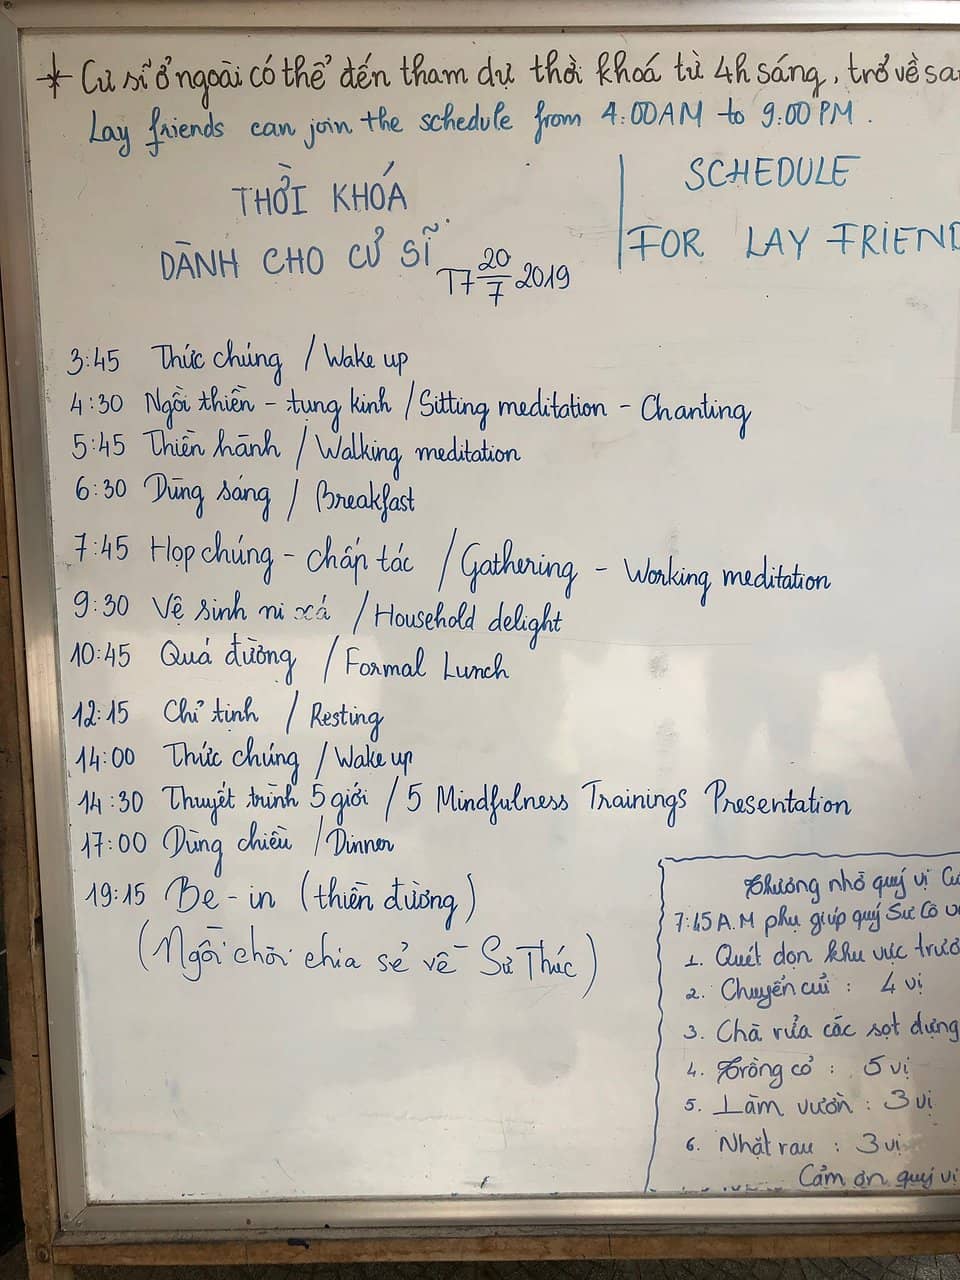 * Cư sĩ ở ngoài có thể đến tham dự thời khoá từ 4h sáng, trở về
Lay friends can join the schedule from 4:00AM to 9:00PM.
THỜI KHÓA
DÀNH CHO CƯ SĨ
T7 20/7 2019
SCHEDULE
FOR LAY FRIEND
3:45 Thức chúng / Wake up
4:30 Ngồi thiền - tụng kinh / Sitting meditation - Chanting
5:45 Thiền hành / Walking meditation
6:30 Dùng sáng / Breakfast
7:45 Họp chúng - chấp tác / Gathering - Working meditation
9:30 Vệ sinh ni xá / Household delight
10:45 Quá đường / Formal Lunch
12:15 Chỉ tịnh / Resting
14:00 Thức chúng / Wake up
14:30 Thuyết trình 5 giới / 5 Mindfulness Trainings Presentation
17:00 Dùng chiều / Dinner
19:15 Be-in (thiền đường)
(Ngồi chơi chia sẻ về Sư Thúc)
thương nhờ quý vị
7:45 A.M phụ giúp quý Sư Cô
1. Quét dọn khu vực
2. Chuyển củi : 4 vị
3. Chà rửa các sọt đựng
4. Trồng cỏ : 5 vị
5. Làm vườn : 3 vị
6. Nhặt rau : 3 vị
Cảm ơn quý vị